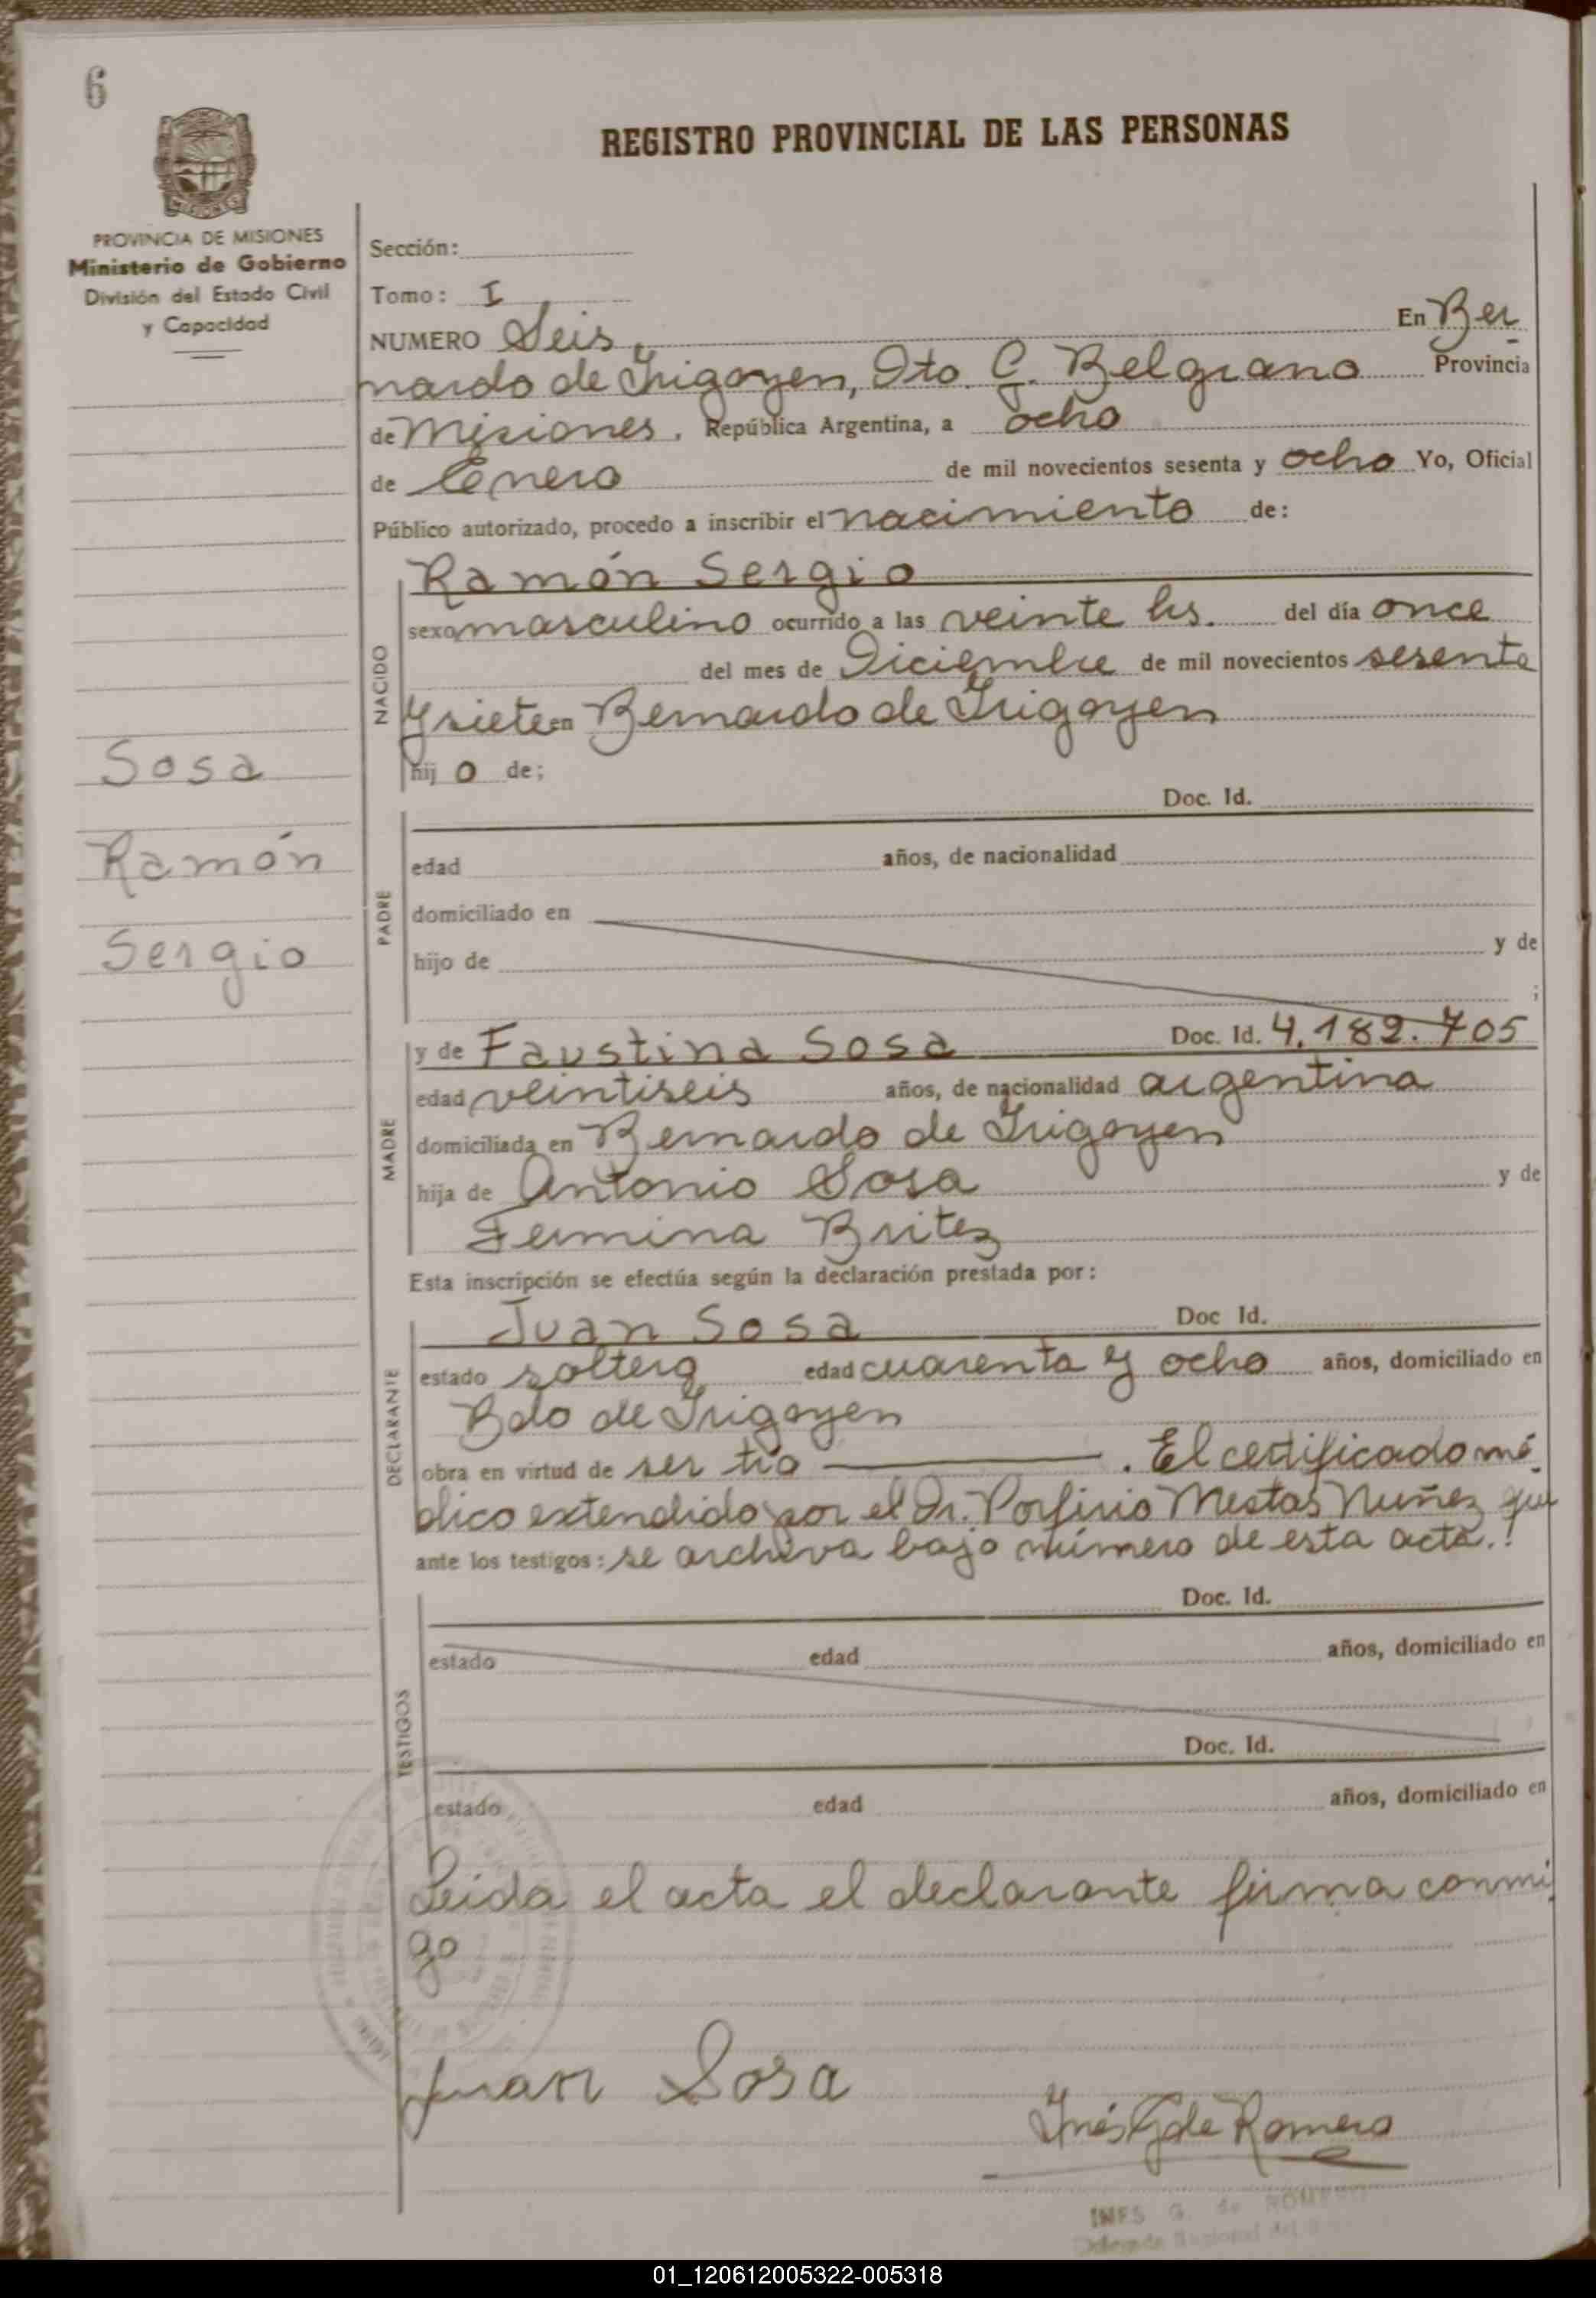 6
REGISTRO PROVINCIAL DE LAS PERSONAS
MISIONES
PROVINCIA DE MISIONES
Ministerio de Gobierno
División del Estado Civil
y Capacidad
Sosa
Ramón
Sergio
Sección:
Tomo: I
NUMERO Seis. En Ber
nardo de Irigoyen, Dto. G. Belgrano Provincia
de Misiones. República Argentina, a ocho
de Enero de mil novecientos sesenta y ocho Yo, Oficial
Público autorizado, procedo a inscribir el nacimiento de:
NACIDO
Ramón Sergio
sexo masculino ocurrido a las veinte hs. del día once
del mes de Diciembre de mil novecientos sesenta
y siete en Bernardo de Irigoyen
hij o de;
PADRE
Doc. Id.
edad años, de nacionalidad
domiciliado en
hijo de y de
;
MADRE
y de Faustina Sosa Doc. Id. 4.182.705
edad veintiseis años, de nacionalidad argentina
domiciliada en Bernardo de Irigoyen
hija de Antonio Sosa y de
Fermina Britez
Esta inscripción se efectúa según la declaración prestada por:
DECLARANTE
Juan Sosa Doc Id.
estado soltero edad cuarenta y ocho años, domiciliado en
Bdo de Irigoyen
obra en virtud de ser tío . El certificado mé
dico extendido por el Dr. Porfirio Mestas Nuñez que
ante los testigos: se archiva bajo número de esta acta.
TESTIGOS
Doc. Id.
estado edad años, domiciliado en
Doc. Id.
estado edad años, domiciliado en
Leida el acta el declarante firma conmi
go
Juan Sosa
Inés G de Romero
INES G. de ROMERO
01_120612005322-005318